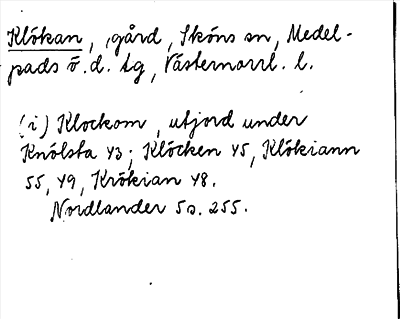 Klökan, gård, Sköns sn, Medel-
pads ö. d. tg, Västernorrl. l.
(i) Klockom, utjord under
Knölsta 43; Klöcken 45, Klökiann
55, 49, Krökian 48.
Nordlander 5 s. 255.